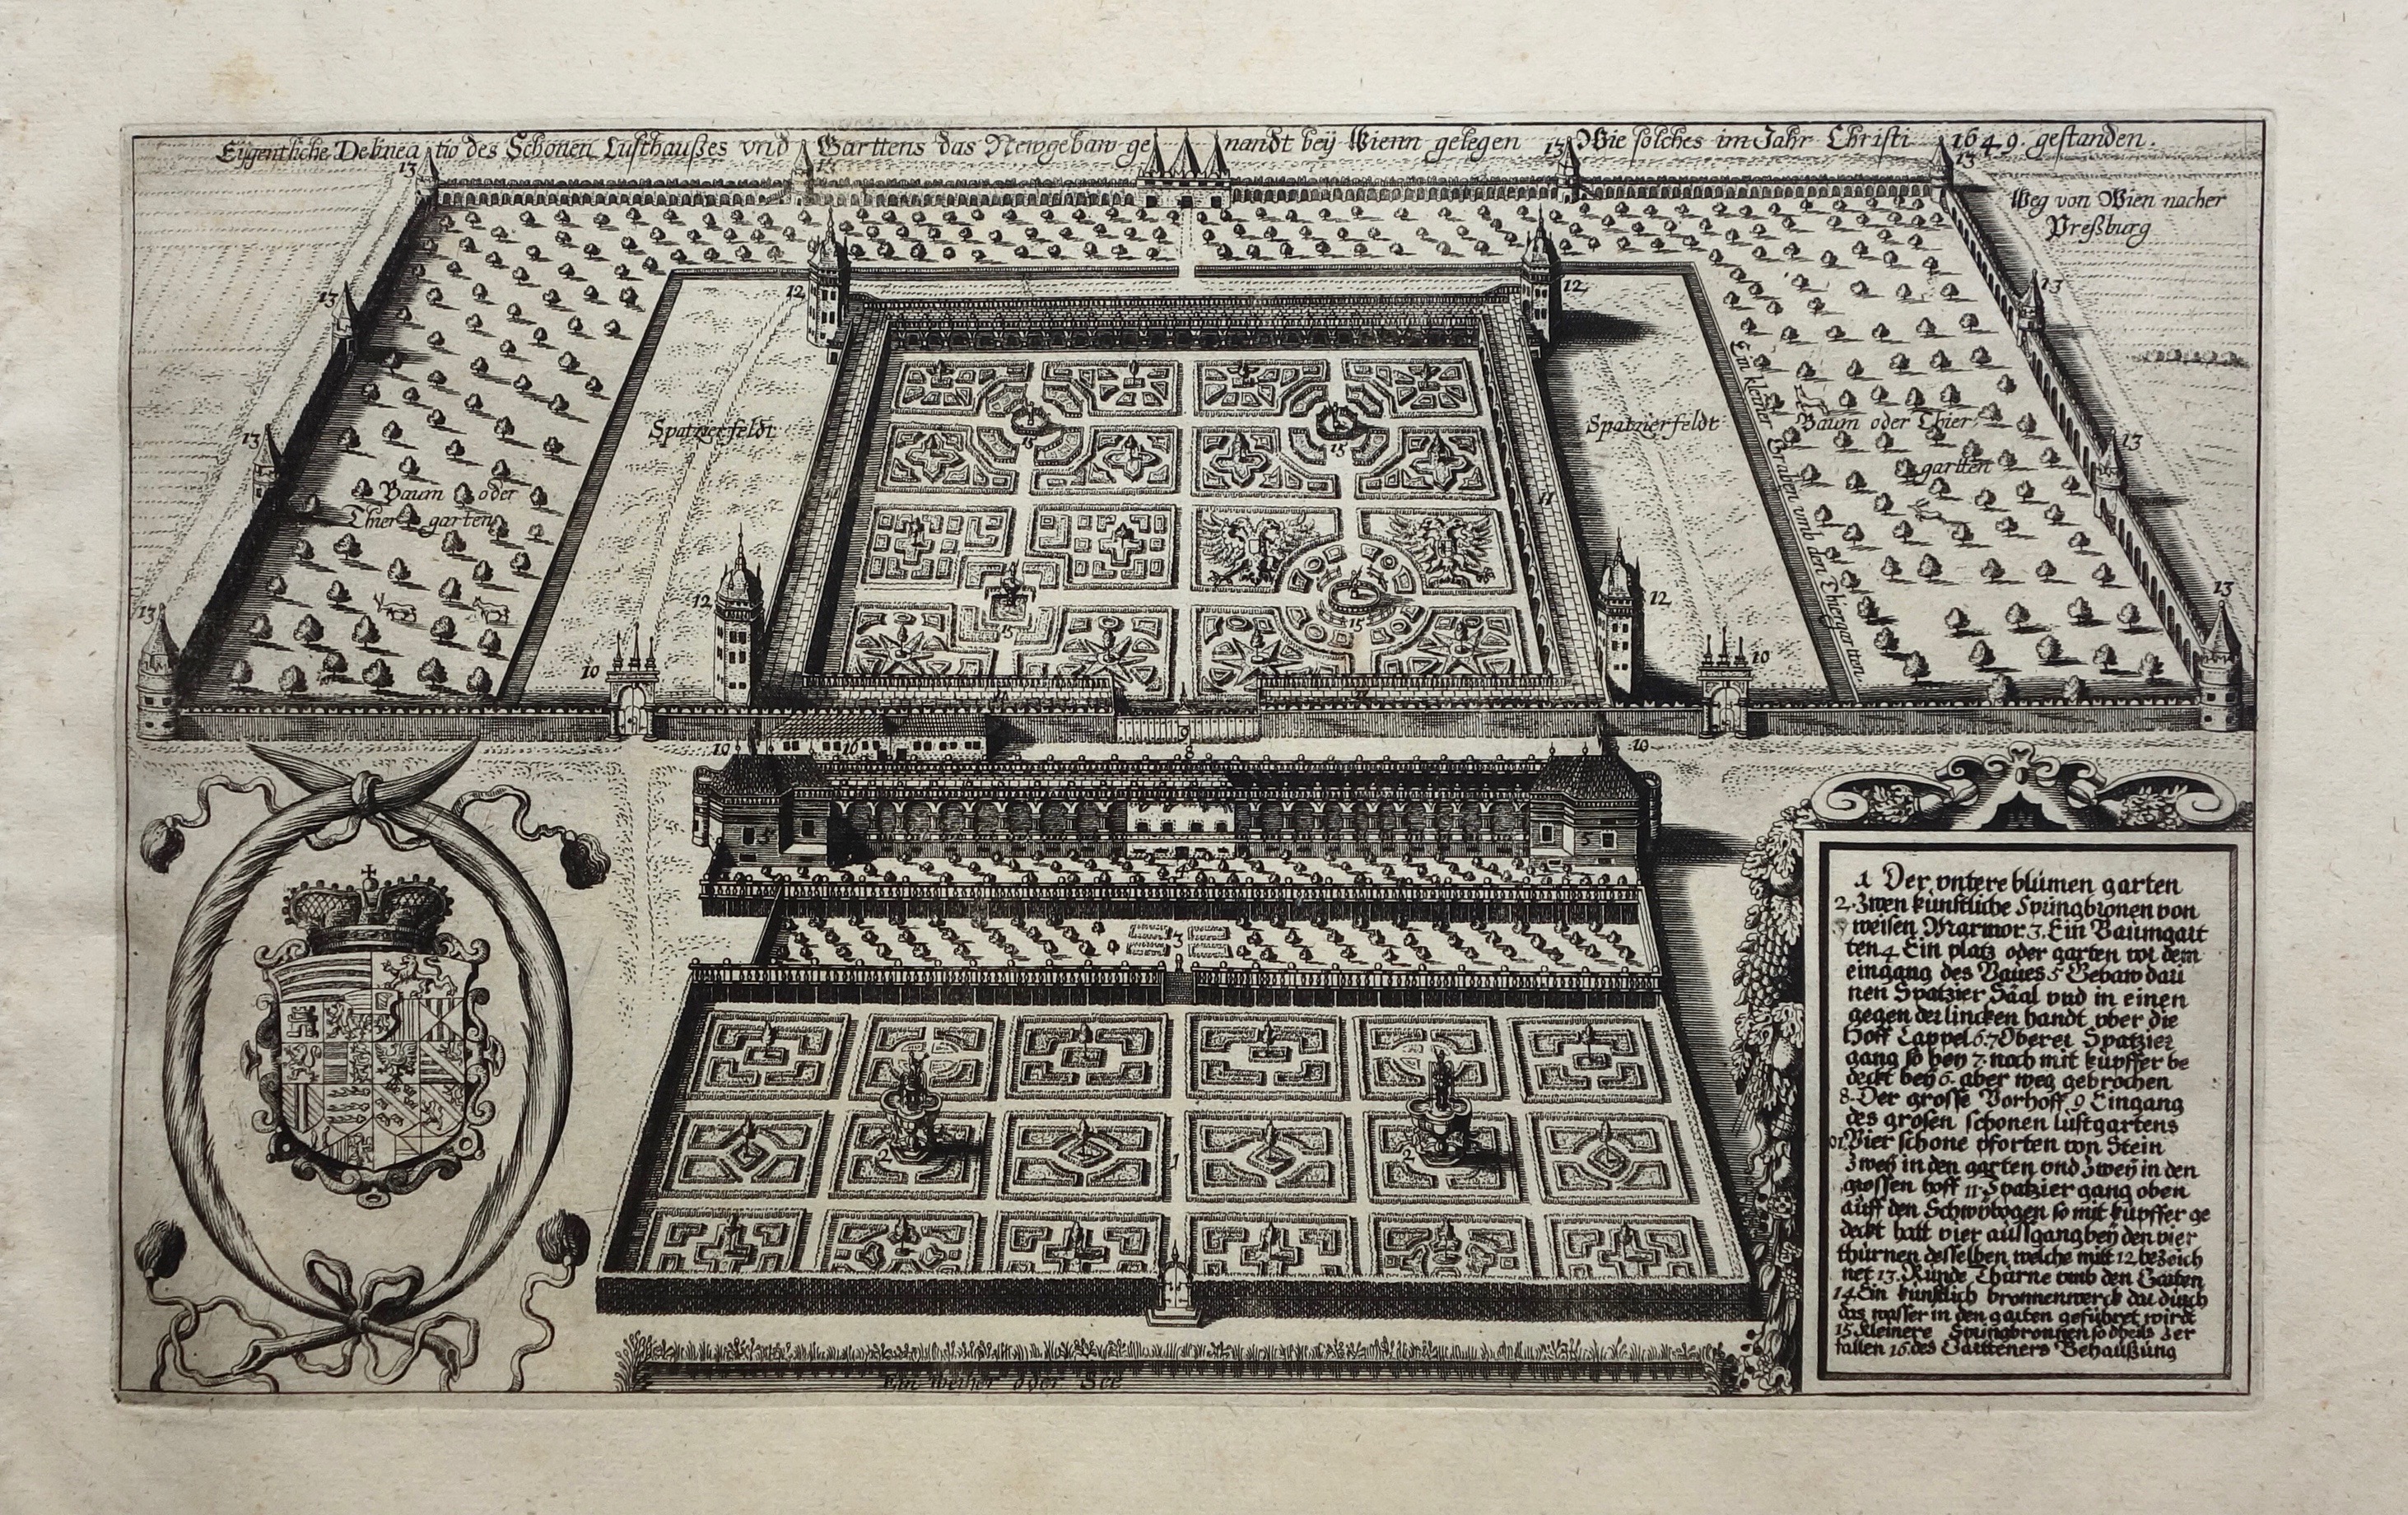 Eÿgentliche Delineatio des Schönen Lusthaußes vnd Garttens das Newgebaw genandt beÿ Wienn gelegen Wie solches im Jahr Christi 1649. gestanden.
13 13 13 13
Weg von Wien nacher
Preßburg
13 12 12 13
Spatzierfeldt Spatzierfeldt
Ein kleiner Graben vmb den Thiergartten
Baum oder Thier
gartten
13 15 15 13
Baum oder
Thier garten
11 11
13 12 15 15 12 13
10 10
10 16 9 8 10
5 4 5
3
2 1 2
Ein weiher oder See
1 Der vntere blumen garten
2. Zwen künstliche Springbronen von
weisen Marmor. 3. Ein Baumgart
ten 4 Ein platz oder garten vor dem
eingang des Baues 5 Gebaw dari
nen Spatzier Säal vnd in einen
gegen der lincken handt vber die
Hoff Cappel 6. 7 Oberer Spatzier
gang so bey 7. noch mit kupffer be
deckt bey 6. aber weg gebrochen
8. Der grosse Vorhoff 9 Eingang
des grosen schonen lustgartens
01. Vier schone pforten von Stein
Zweÿ in den garten vnd Zweÿ in den
grossen hoff 11. Spatzier gang oben
auff den Schwybogen so mit kupffer ge
deckt hatt vier aussgang beÿ den vier
thürnen desselben welche mitt 12 beZeich
net 13. Runde Thürne vmb den Garten
14 Ein künstlich bronnenwerck dar durch
das wasser in den garten geführet wirdt
15 Kleinere Springbronnen so theils Zer
fallen 16. des Garttners Behaußung